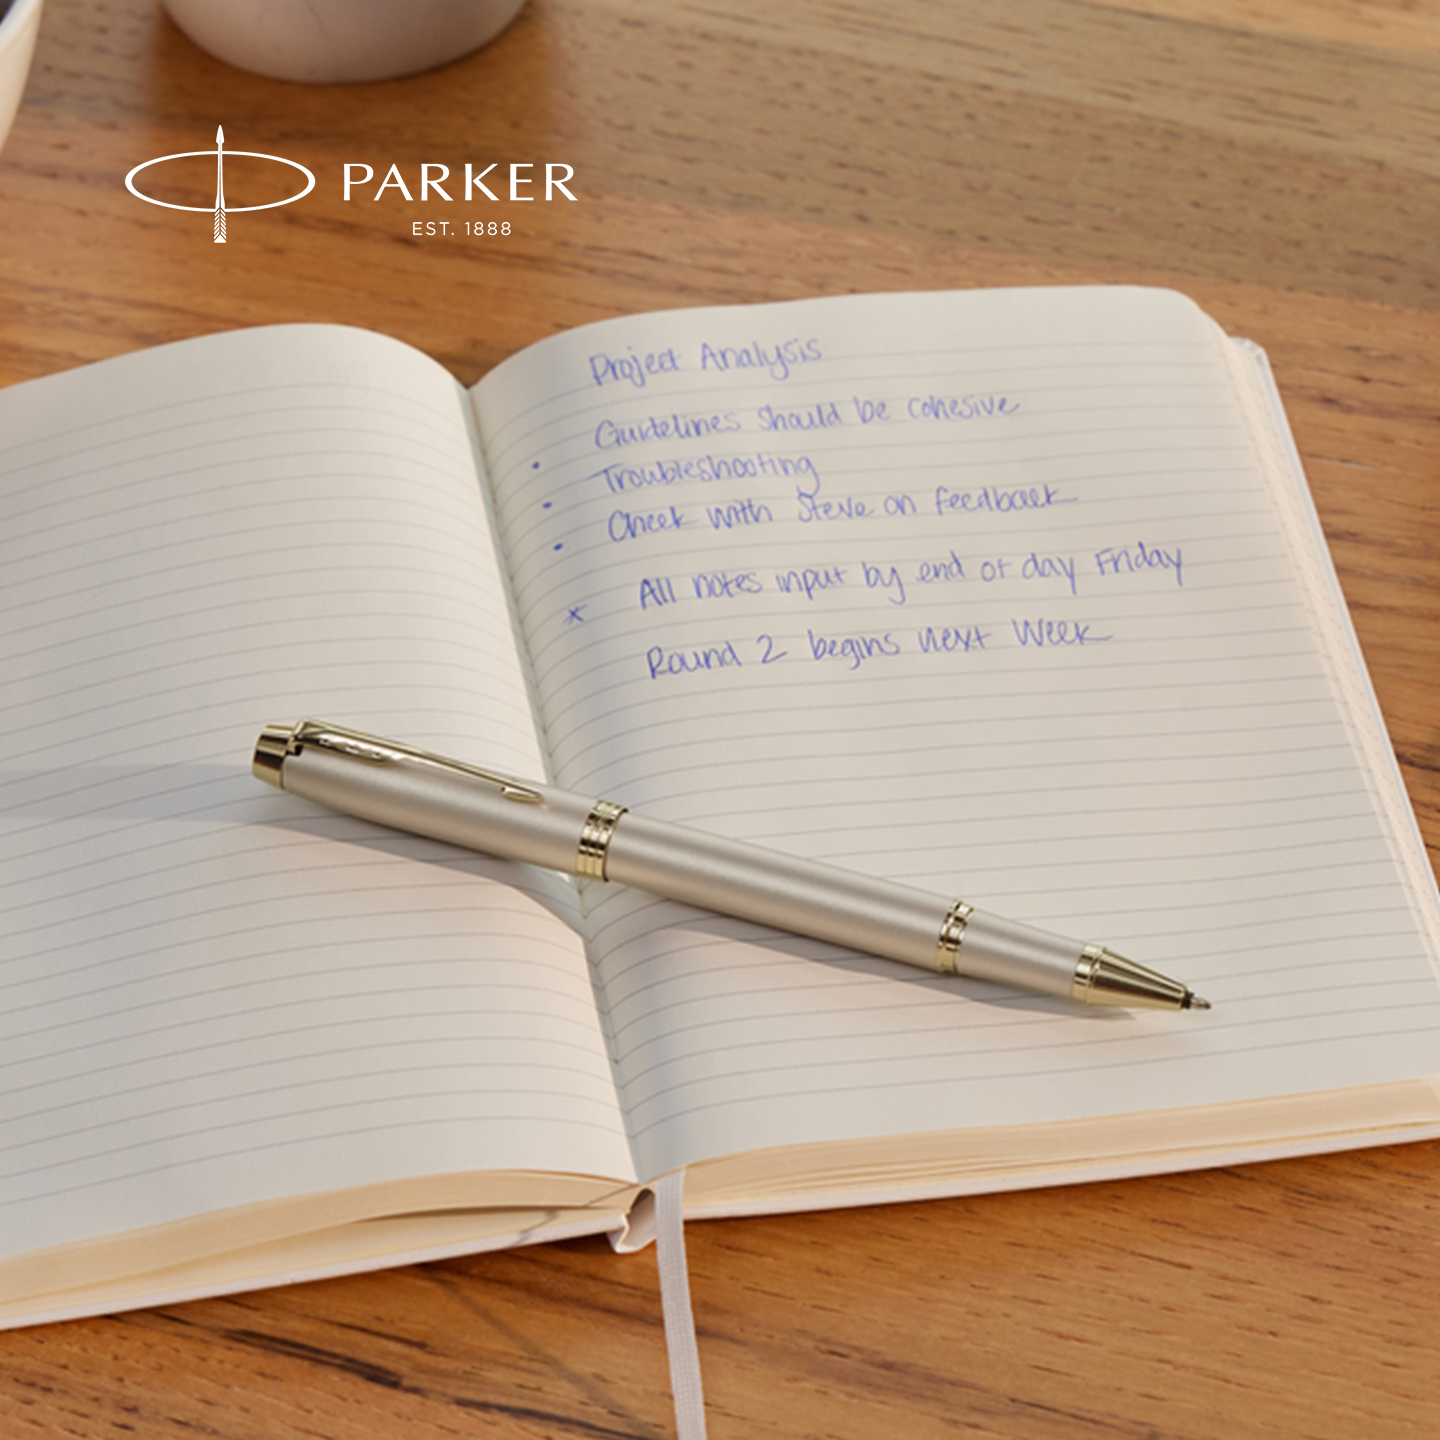 PARKER
EST. 1888
Project Analysis
Guidelines should be cohesive
• Troubleshooting
• Check with Steve on feedback
•
* All notes input by end of day Friday
Round 2 begins next Week